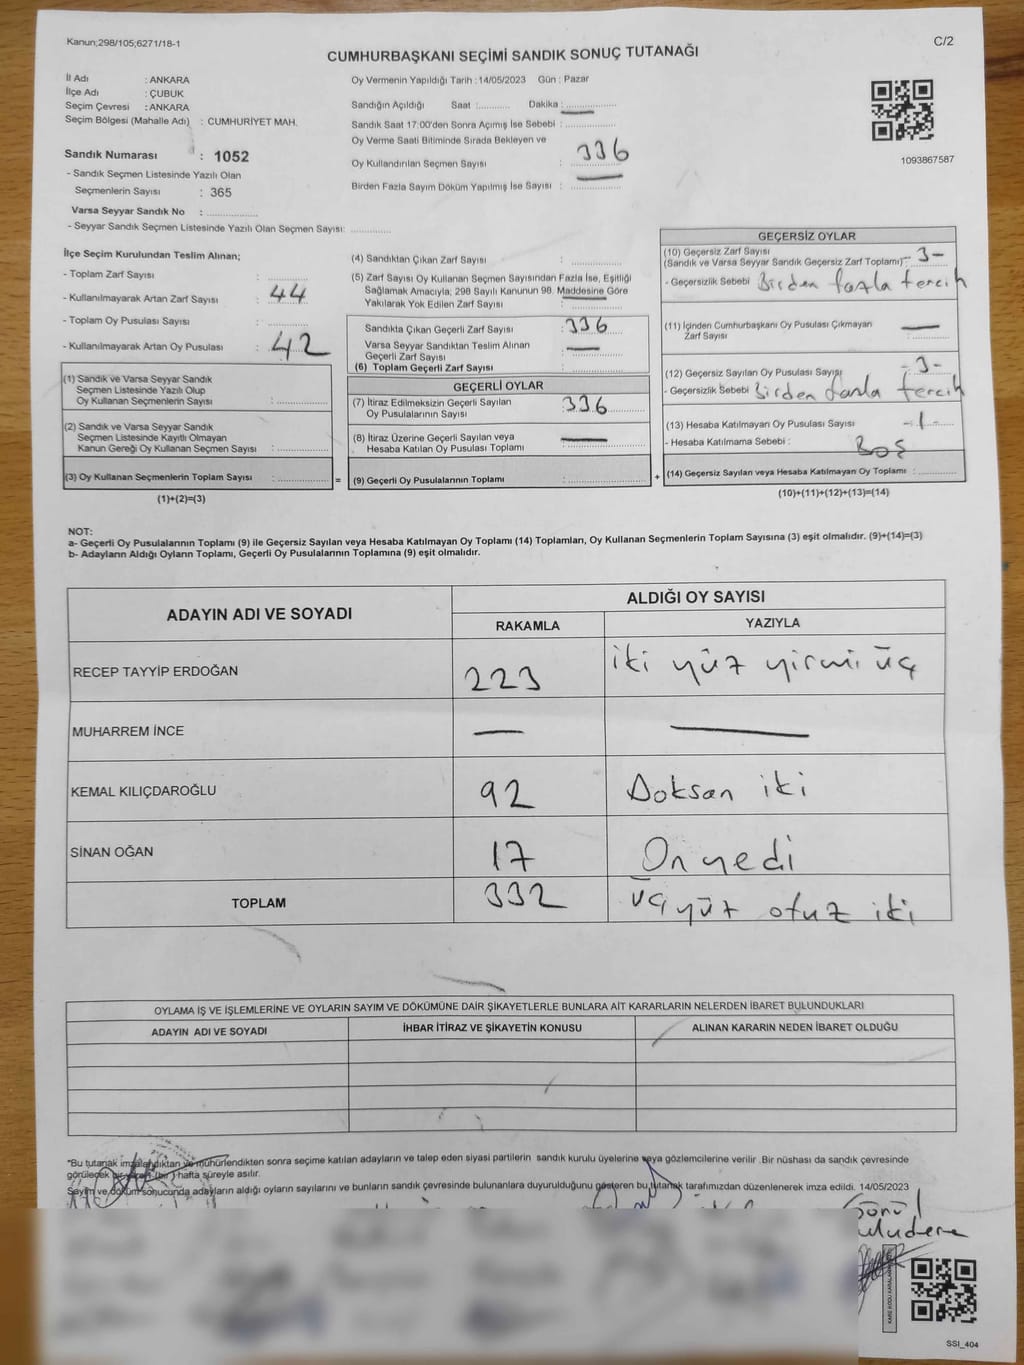 Kanun;298/105;6271/18-1
C/2
CUMHURBAŞKANI SEÇİMİ SANDIK SONUÇ TUTANAĞI
İl Adı : ANKARA
İlçe Adı : ÇUBUK
Seçim Çevresi : ANKARA
Seçim Bölgesi (Mahalle Adı) : CUMHURİYET MAH.
Sandık Numarası : 1052
- Sandık Seçmen Listesinde Yazılı Olan
Seçmenlerin Sayısı : 365
Varsa Seyyar Sandık No : ................
- Seyyar Sandık Seçmen Listesinde Yazılı Olan Seçmen Sayısı: ............
Oy Vermenin Yapıldığı Tarih : 14/05/2023 Gün : Pazar
Sandığın Açıldığı Saat :.......... Dakika :................
Sandık Saat 17:00'den Sonra Açımış İse Sebebi :................
Oy Verme Saati Bitiminde Sırada Bekleyen ve
Oy Kullandırılan Seçmen Sayısı : 336
Birden Fazla Sayım Döküm Yapılmış İse Sayısı :................
1093867587
İlçe Seçim Kurulundan Teslim Alınan;
- Toplam Zarf Sayısı : ............
- Kullanılmayarak Artan Zarf Sayısı : 44
- Toplam Oy Pusulası Sayısı : ............
- Kullanılmayarak Artan Oy Pusulası : 42
(1) Sandık ve Varsa Seyyar Sandık
Seçmen Listesinde Yazılı Olup
Oy Kullanan Seçmenlerin Sayısı :................
(2) Sandık ve Varsa Seyyar Sandık
Seçmen Listesinde Kayıtlı Olmayan
Kanun Gereği Oy Kullanan Seçmen Sayısı :................
(3) Oy Kullanan Seçmenlerin Toplam Sayısı :................
(1)+(2)=(3)
(4) Sandıktan Çıkan Zarf Sayısı :................
(5) Zarf Sayısı Oy Kullanan Seçmen Sayısından Fazla İse, Eşitliği
Sağlamak Amacıyla, 298 Sayılı Kanunun 98. Maddesine Göre
Yakılarak Yok Edilen Zarf Sayısı :................
Sandıkta Çıkan Geçerli Zarf Sayısı : 336
Varsa Seyyar Sandıktan Teslim Alınan
Geçerli Zarf Sayısı : —
(6) Toplam Geçerli Zarf Sayısı :................
GEÇERLİ OYLAR
(7) İtiraz Edilmeksizin Geçerli Sayılan
Oy Pusulalarının Sayısı : 336
(8) İtiraz Üzerine Geçerli Sayılan veya
Hesaba Katılan Oy Pusulası Toplamı : —
= (9) Geçerli Oy Pusulalarının Toplamı :................
GEÇERSİZ OYLAR
(10) Geçersiz Zarf Sayısı
(Sandık ve Varsa Seyyar Sandık Geçersiz Zarf Toplamı) - 3 -
- Geçersizlik Sebebi Birden fazla tercih
(11) İçinden Cumhurbaşkanı Oy Pusulası Çıkmayan
Zarf Sayısı —
(12) Geçersiz Sayılan Oy Pusulası Sayısı - 3 -
- Geçersizlik Sebebi Birden fazla tercih
(13) Hesaba Katılmayan Oy Pusulası Sayısı - 1 -
- Hesaba Katılmama Sebebi : Boş
+ (14) Geçersiz Sayılan veya Hesaba Katılmayan Oy Toplamı :............
(10)+(11)+(12)+(13)=(14)
NOT:
a- Geçerli Oy Pusulalarının Toplamı (9) ile Geçersiz Sayılan veya Hesaba Katılmayan Oy Toplamı (14) Toplamları, Oy Kullanan Seçmenlerin Toplam Sayısına (3) eşit olmalıdır. (9)+(14)=(3)
b- Adayların Aldığı Oyların Toplamı, Geçerli Oy Pusulalarının Toplamına (9) eşit olmalıdır.
ADAYIN ADI VE SOYADI
ALDIĞI OY SAYISI
RAKAMLA YAZIYLA
RECEP TAYYİP ERDOĞAN 223 iki yüz yirmi üç
MUHARREM İNCE — —
KEMAL KILIÇDAROĞLU 92 Doksan iki
SİNAN OĞAN 17 On yedi
TOPLAM 332 üçyüz otuz iki
OYLAMA İŞ VE İŞLEMLERİNE VE OYLARIN SAYIM VE DÖKÜMÜNE DAİR ŞİKAYETLERLE BUNLARA AİT KARARLARIN NELERDEN İBARET BULUNDUKLARI
ADAYIN ADI VE SOYADI İHBAR İTİRAZ VE ŞİKAYETİN KONUSU ALINAN KARARIN NEDEN İBARET OLDUĞU
*Bu tutanak imzalandıktan ve mühürlendikten sonra seçime katılan adayların ve talep eden siyasi partilerin sandık kurulu üyelerine veya gözlemcilerine verilir .Bir nüshası da sandık çevresinde
görülecek bir yere 1 (bir) hafta süreyle asılır.
Sayım ve döküm sonucunda adayların aldığı oyların sayılarını ve bunların sandık çevresinde bulunanlara duyurulduğunu gösteren bu tutanak tarafımızdan düzenlenerek imza edildi. 14/05/2023
Gönül
uludere
SSI_404